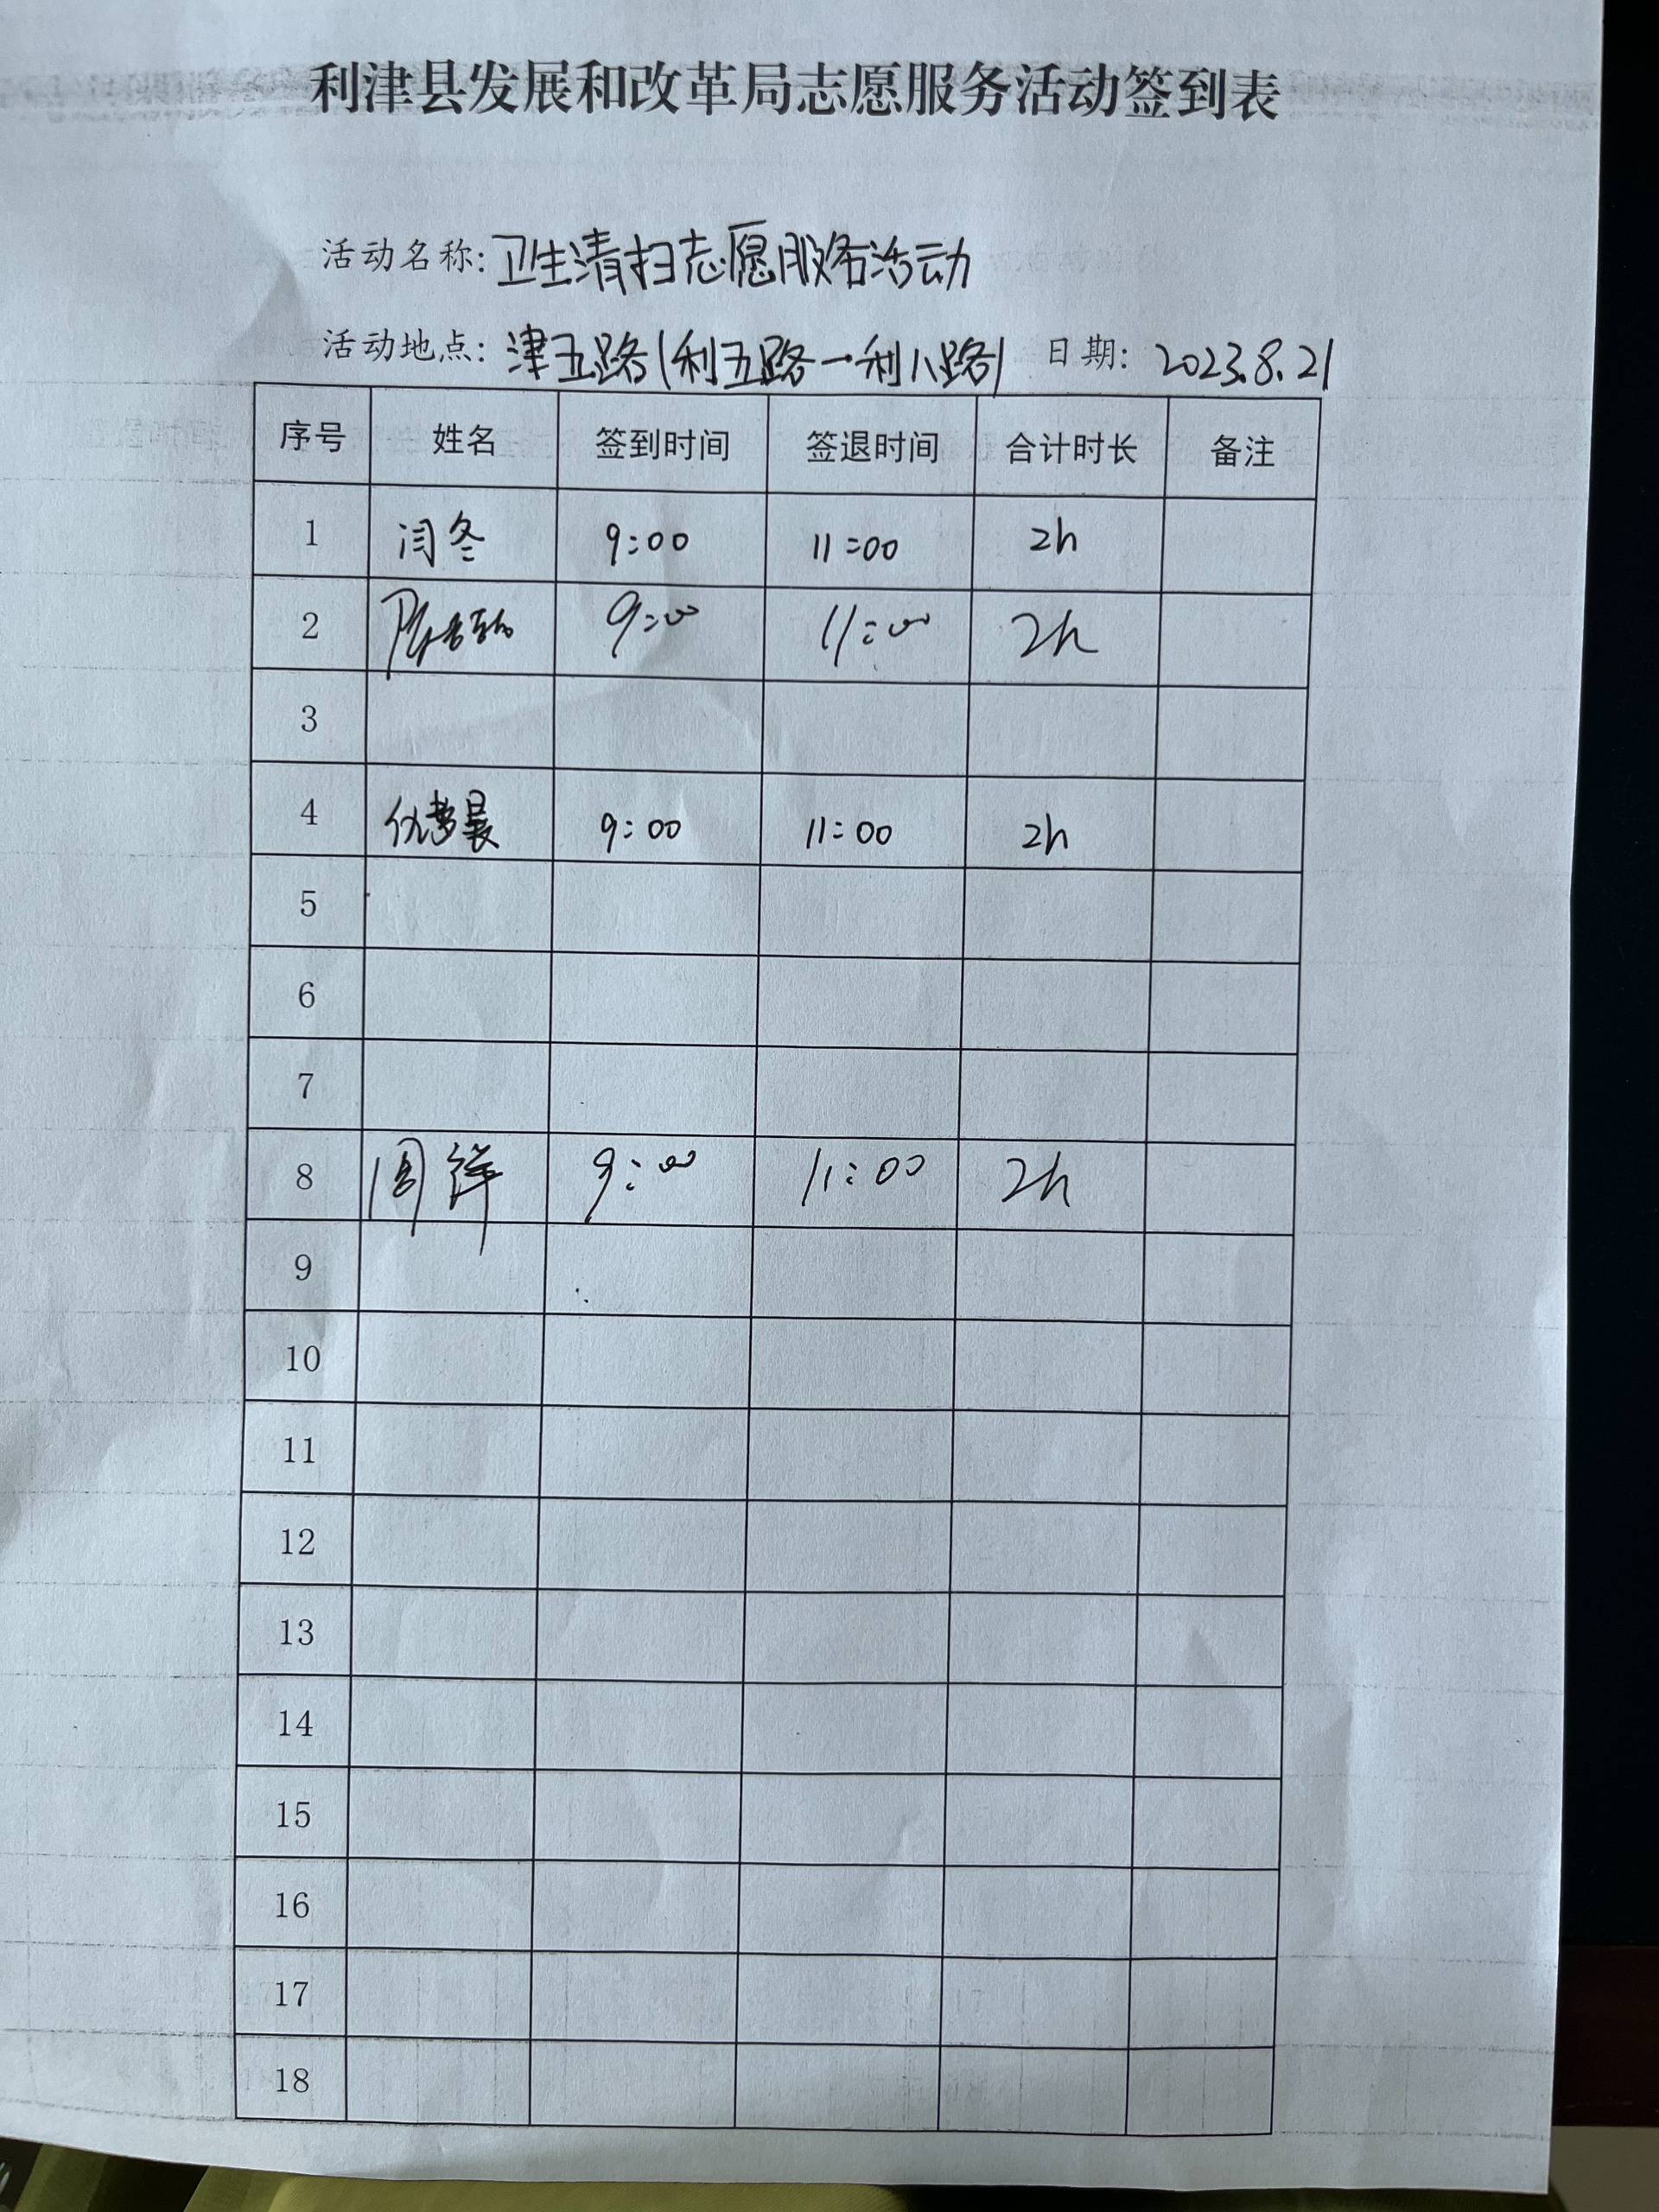 利津县发展和改革局志愿服务活动签到表
活动名称:卫生清扫志愿服务活动
活动地点:津五路(利五路一利八路) 日期:2023.8.21
序号 姓名 签到时间 签退时间 合计时长 备注
1 闫冬 9:00 11:00 2h
2 9:00 11:00 2h
3
4 仇梦晨 9:00 11:00 2h
5
6
7
8 周洋 9:00 11:00 2h
9
10
11
12
13
14
15
16
17
18